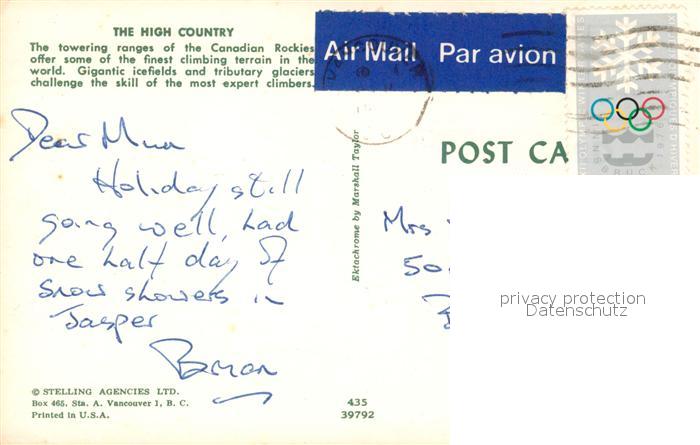 THE HIGH COUNTRY
The towering ranges of the Canadian Rockies
offer some of the finest climbing terrain in the
world. Gigantic icefields and tributary glaciers
challenge the skill of the most expert climbers.
Air Mail Par avion
POST CA
Dear Mum
Holiday still
going well, had
one half day of
snow showers in
Jasper
Brian
Mrs
50
Ektachrome by Marshall Taylor
privacy protection
Datenschutz
© STELLING AGENCIES LTD.
Box 465, Sta. A. Vancouver 1, B. C.
Printed in U.S.A.
435
39792